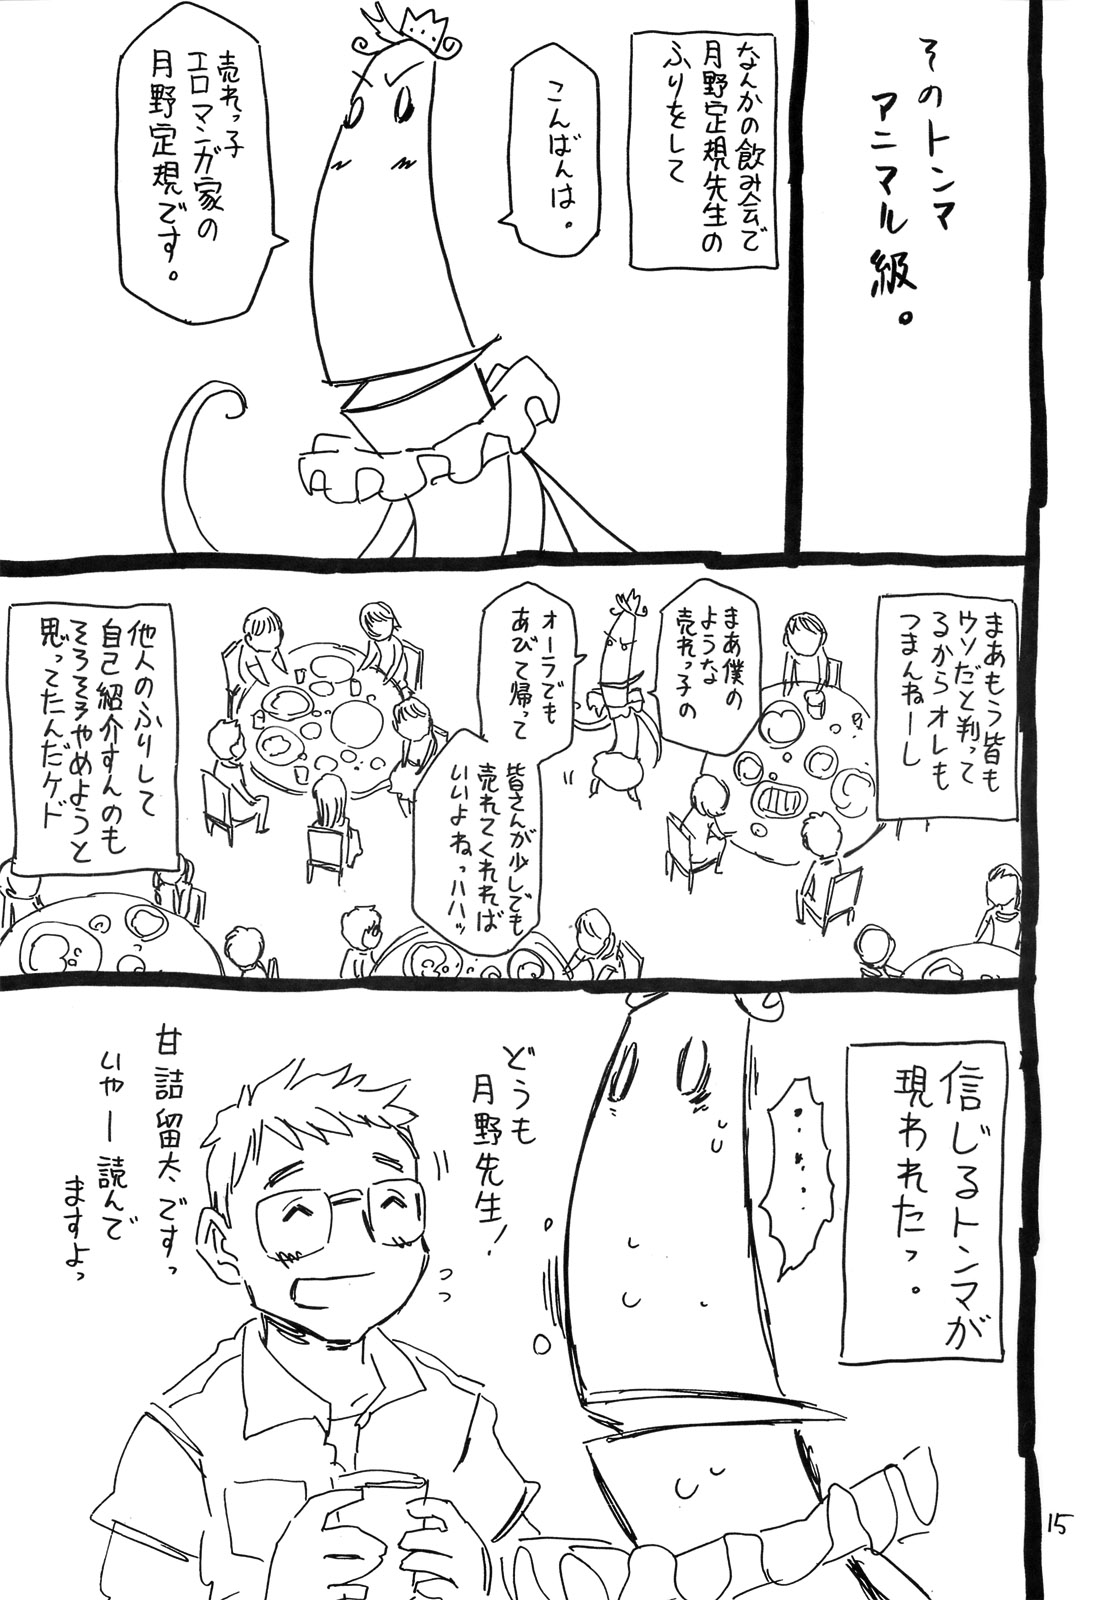 そのトンマ
アニマル級。
なんかの飲み会で
月野定規先生の
ふりをして
こんばんは。
売れっ子
エロマンガ家の
月野定規です。
まあもう皆も
ウソだと判って
るからオレも
つまんねーし
まあ僕の
ような
売れっ子の
オーラでも
あびて帰って
皆さんが少しでも
売れてくれれば
いいよねっハハッ
他人のふりして
自己紹介すんのも
そろそろやめようと
思ってたんだケド
信じるトンマが
現われたっ。
・・・・・
どうも
月野先生!
甘詰留太、ですっ
いやー読んで
ますよっ
15